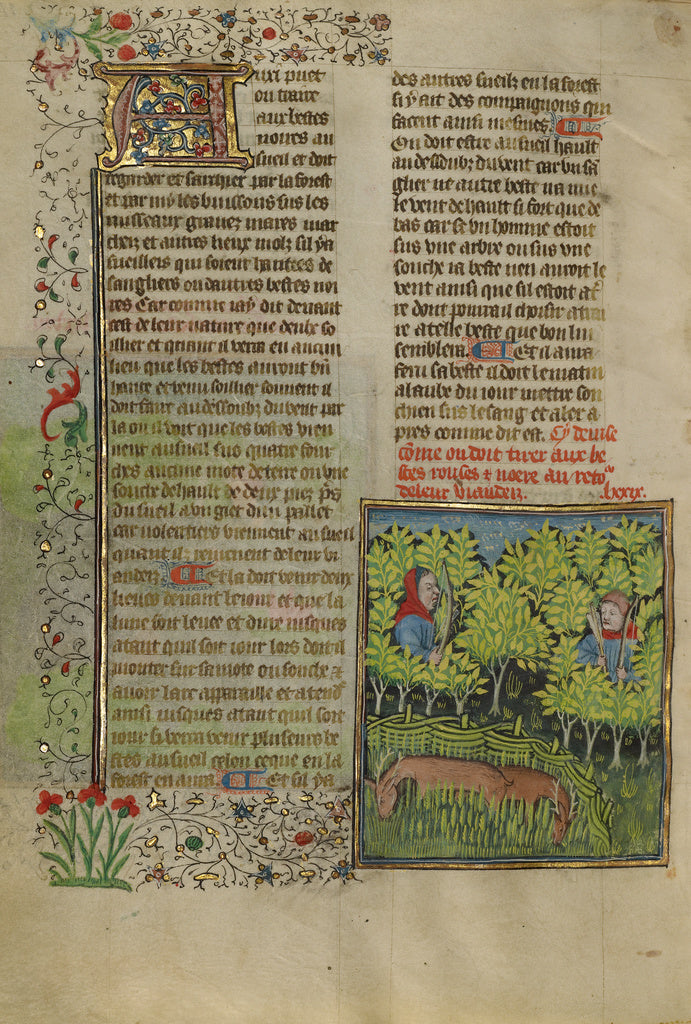 Aussi puet
ou traire
aux bestes
noires au
sueil et doit
regarder et sarchier par la forest
et par my les buissons sus les
ruisseaux gravez mares mar
cheiz et autres lieux molz sil y a
sueilliers qui soient hantees de
sangliers ou dautres bestes noi
res Car comme iay dit devant
cest de leur nature que deulx so
illier et quant il verra en aucun
lieu que les bestes auront bn
hante et venu soillier souvent il
doit faire au dessoubz du vent par
la ou il voit que les bestes vien
nent au sueil sus quatre four
ches aucune mote de terre ou une
souche de hault de deux piez pres
du sueil a un giet dun pallet
car volentiers viennent au sueil
quant ilz reviennent de leur vi
andes Et la doit venir deux
lieues devant le iour et que la
lune soit levee et dure iusques
a tant quil soit iour lors doit il
monter sur sa mote ou souche et
avoir larc appareille et atend
ainsi iusques a tant quil soit
iour si verra venir pluseurs be
stes au sueil celon ce que en la
forest en aura Et sil y a
des autres sueilz en la forest
si y ait des compaignons qui
facent ainsi mesmes
On doit estre au sueil hault
au dessoubz du vent car un sa
glier ne autre beste na mie
le vent de hault si fort que de
bas car se un homme estoit
sus une arbre ou sus une
souche ia beste nen auroit le
vent ainsi que sil estoit a ter
re dont pourra il choisir a trai
re a telle beste que bon lui
semblera Et il aura
feru sa beste il doit le matin
a laube du iour mettre son
chien sus le sang et aler a
pres comme dit est. Cy devise
comme on doit tirer aux be
stes rouses et noire au reto
de leur viandez .lxxix.